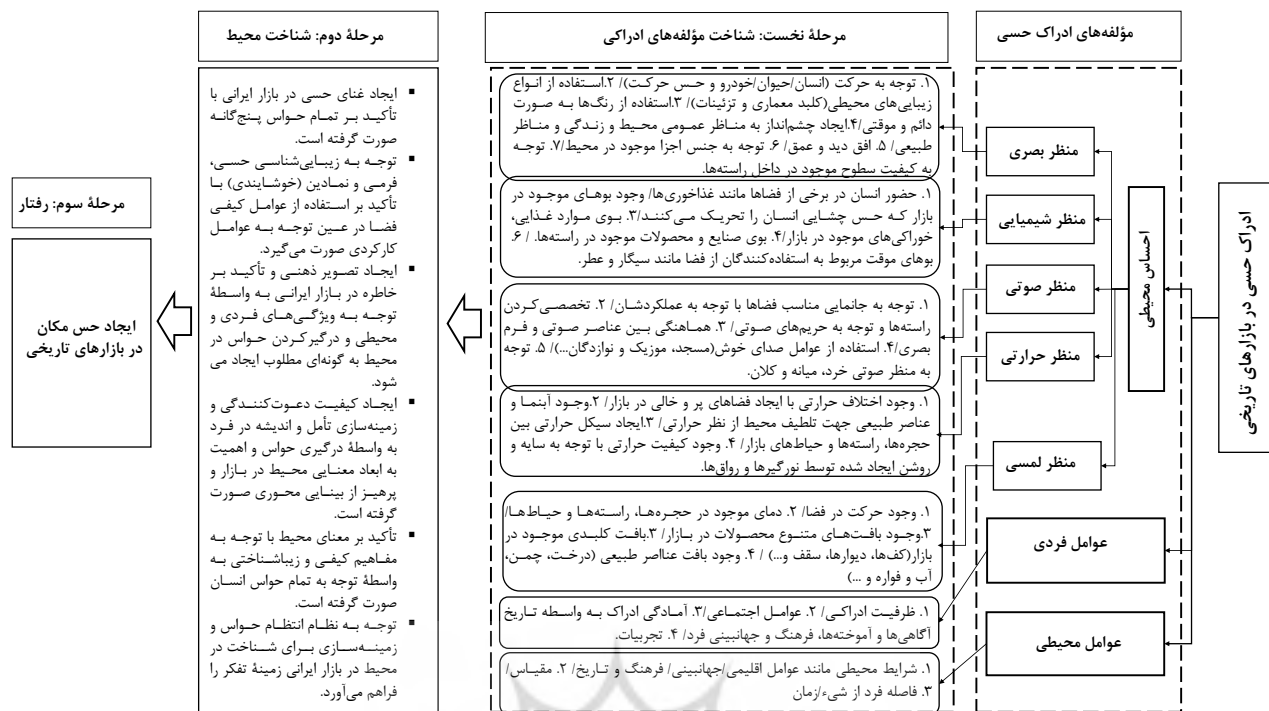 ادراک حسی در بازارهای تاریخی
مؤلفه‌های ادراک حسی
احساس محیطی
منظر بصری
منظر شیمیایی
منظر صوتی
منظر حرارتی
منظر لمسی
عوامل فردی
عوامل محیطی
مرحلۀ نخست: شناخت مؤلفه‌های ادراکی
۱. توجه به حرکت (انسان/حیوان/خودرو و حس حرکت)/ ۲.استفاده از انواع
زیبایی‌های محیطی(کلبد معماری و تزئینات)/ ۳.استفاده از رنگ‌ها به صورت
دائم و موقتی/۴.ایجاد چشم‌انداز به مناظر عمومی محیط و زندگی و مناظر
طبیعی/ ۵. افق دید و عمق/ ۶. توجه به جنس اجزا موجود در محیط/۷. توجه
به کیفیت سطوح موجود در داخل راسته‌ها.
۱. حضور انسان در برخی از فضاها مانند غذاخوری‌ها/ وجود بوهای موجود در
بازار که حس چشایی انسان را تحریک می‌کنند/۳. بوی موارد غذایی،
خوراکی‌های موجود در بازار/۴. بوی صنایع و محصولات موجود در راسته‌ها. / ۶.
بوهای موقت مربوط به استفاده‌کنندگان از فضا مانند سیگار و عطر.
۱. توجه به جانمایی مناسب فضاها با توجه به عملکردشان/ ۲. تخصصی‌کردن
راسته‌ها و توجه به حریم‌های صوتی/ ۳. هماهنگی بین عناصر صوتی و فرم
بصری/۴. استفاده از عوامل صدای خوش(مسجد، موزیک و نوازدگان...)/ ۵. توجه
به منظر صوتی خرد، میانه و کلان.
۱. وجود اختلاف حرارتی با ایجاد فضاهای پر و خالی در بازار/ ۲.وجود آبنما و
عناصر طبیعی جهت تلطیف محیط از نظر حرارتی/ ۳.ایجاد سیکل حرارتی بین
حجره‌ها، راسته‌ها و حیاط‌های بازار/ ۴. وجود کیفیت حرارتی با توجه به سایه و
روشن ایجاد شده توسط نورگیرها و رواق‌ها.
۱. وجود حرکت در فضا/ ۲. دمای موجود در حجره‌ها، راسته‌ها و حیاط‌ها/
۳.وجود بافت‌های متنوع محصولات در بازار/ ۳.بافت کلبدی موجود در
بازار(کف‌ها، دیوارها، سقف و...) / ۴. وجود بافت عنااصر طبیعی (درخت، چمن،
آب و فواره و ...)
۱. ظرفیت ادراکی/ ۲. عوامل اجتماعی/۳. آمادگی ادراک به واسطه تاریخ
آگاهی‌ها و آموخته‌ها، فرهنگ و جهانبینی فرد/ ۴. تجربیات.
۱. شرایط محیطی مانند عوامل اقلیمی/جهانبینی/ فرهنگ و تاریخ/ ۲. مقیاس/
۳. فاصله فرد از شیء/زمان
مرحلۀ دوم: شناخت محیط
▪ ایجاد غنای حسی در بازار ایرانی با
تأکید بر تمام حواس پنج‌گانه
صورت گرفته است.
▪ توجه به زیبایی‌شناسی حسی،
فرمی و نمادین (خوشایندی) با
تأکید بر استفاده از عوامل کیفی
فضا در عین توجه به عوامل
کارکردی صورت می‌گیرد.
▪ ایجاد تصویر ذهنی و تأکید بر
خاطره در بازار ایرانی به واسطۀ
توجه به ویژگی‌های فردی و
محیطی و درگیرکردن حواس در
محیط به گونه‌ای مطلوب ایجاد می
شود.
▪ ایجاد کیفیت دعوت‌کنندگی و
زمینه‌سازی تأمل و اندیشه در فرد
به واسطۀ درگیری حواس و اهمیت
به ابعاد معنایی محیط در بازار و
پرهیز از بینایی محوری صورت
گرفته است.
▪ تأکید بر معنای محیط با توجه به
مفاهیم کیفی و زیباشناختی به
واسطۀ توجه به تمام حواس انسان
صورت گرفته است.
▪ توجه به نظام انتظام حواس و
زمینه‌سازی برای شناخت در
محیط در بازار ایرانی زمینۀ تفکر را
فراهم می‌آورد.
مرحلۀ سوم: رفتار
ایجاد حس مکان
در بازارهای تاریخی